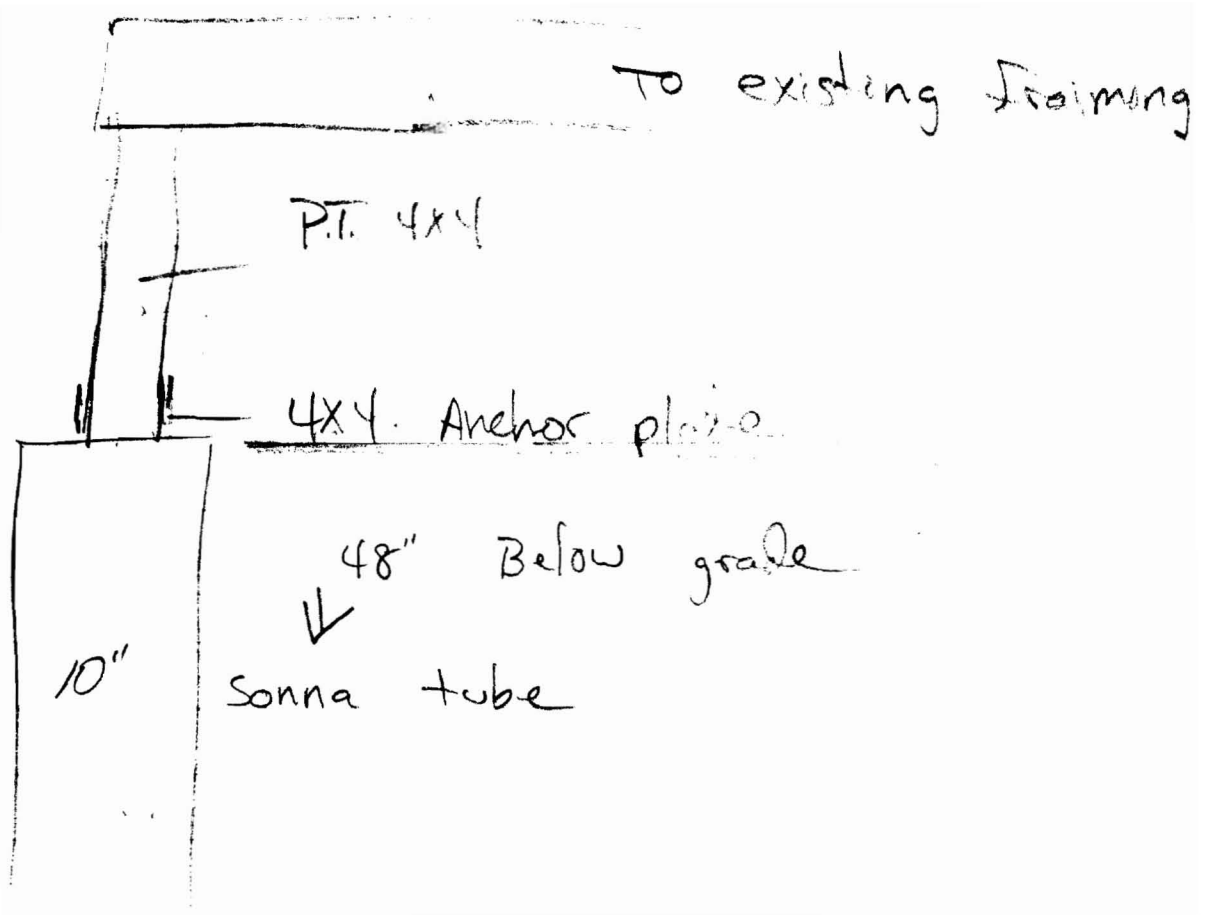 To existing fraiming
P.T. 4x4
4x4. Anchor plate
48" Below grade
10" Sonna tube